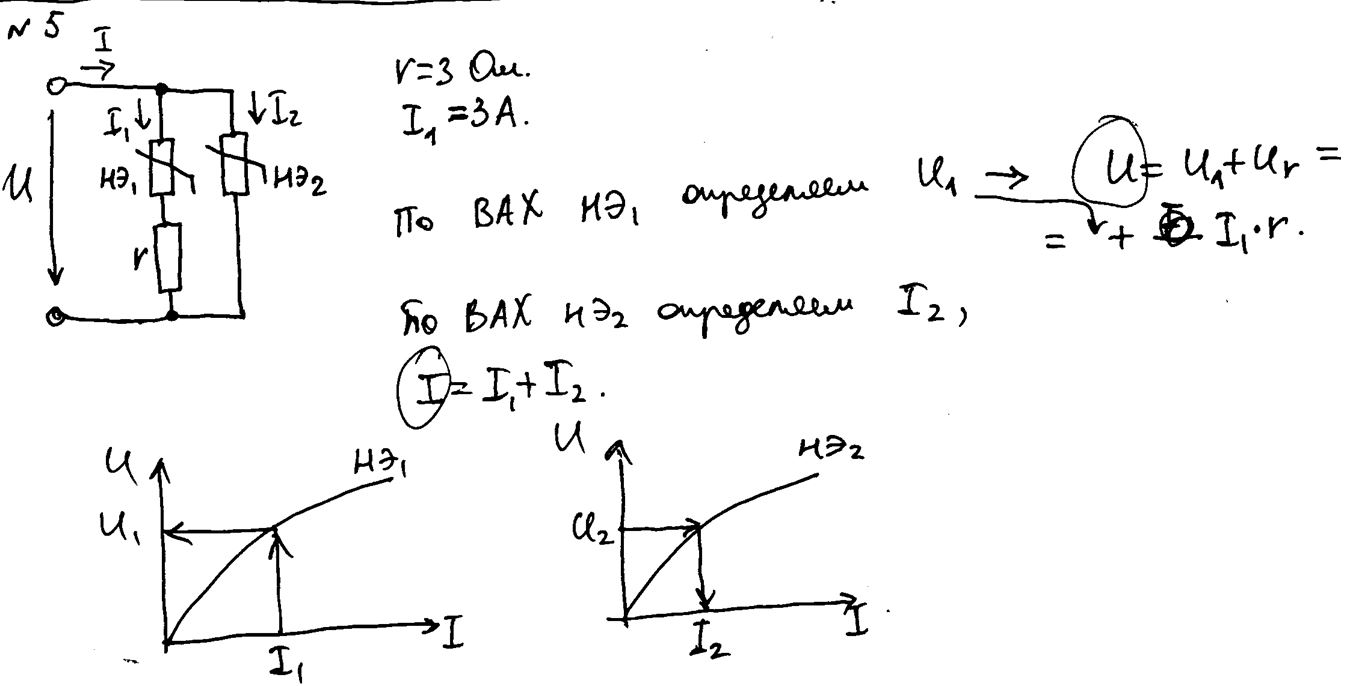 N 5
I
I₁
I₂
U
НЭ₁
НЭ₂
r
r=3 Ом.
I₁=3А.
По ВАХ НЭ₁ определяем U₁ → U = U₁+Uᵣ =
= + I₁·r.
По ВАХ НЭ₂ определяем I₂,
I = I₁+I₂.
U
НЭ₁
U₁
I
I₁
U
НЭ₂
U₂
I
I₂